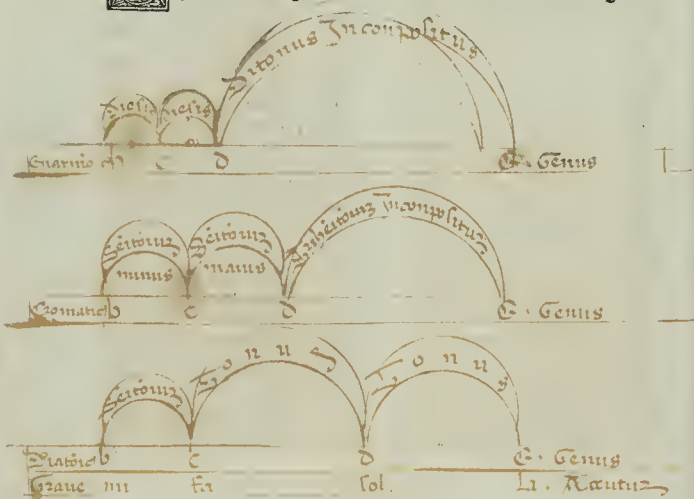 Ditonus Inconpositus
Diesis Diesis
C D E · Genus
Semitoniuz Semitoniuz Trihemitoniuz Inconpositum
minus maius
Cromatic b C D E · Genus
Semitoniuz Tonus Tonus
Diatonic b C D E · Genus
Grave mi fa sol La · Accutuz